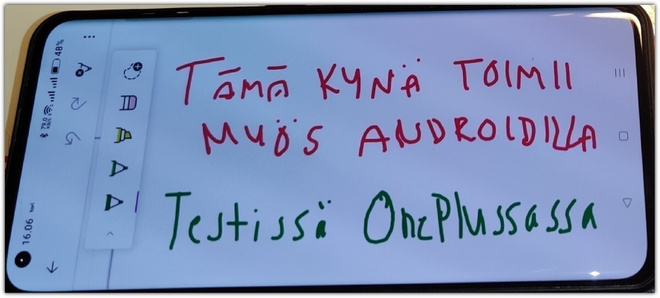 TÄMÄ KYNÄ TOIMII
MYÖS ANDROIDILLA
Testissä OnePlussassa
16.06
48%